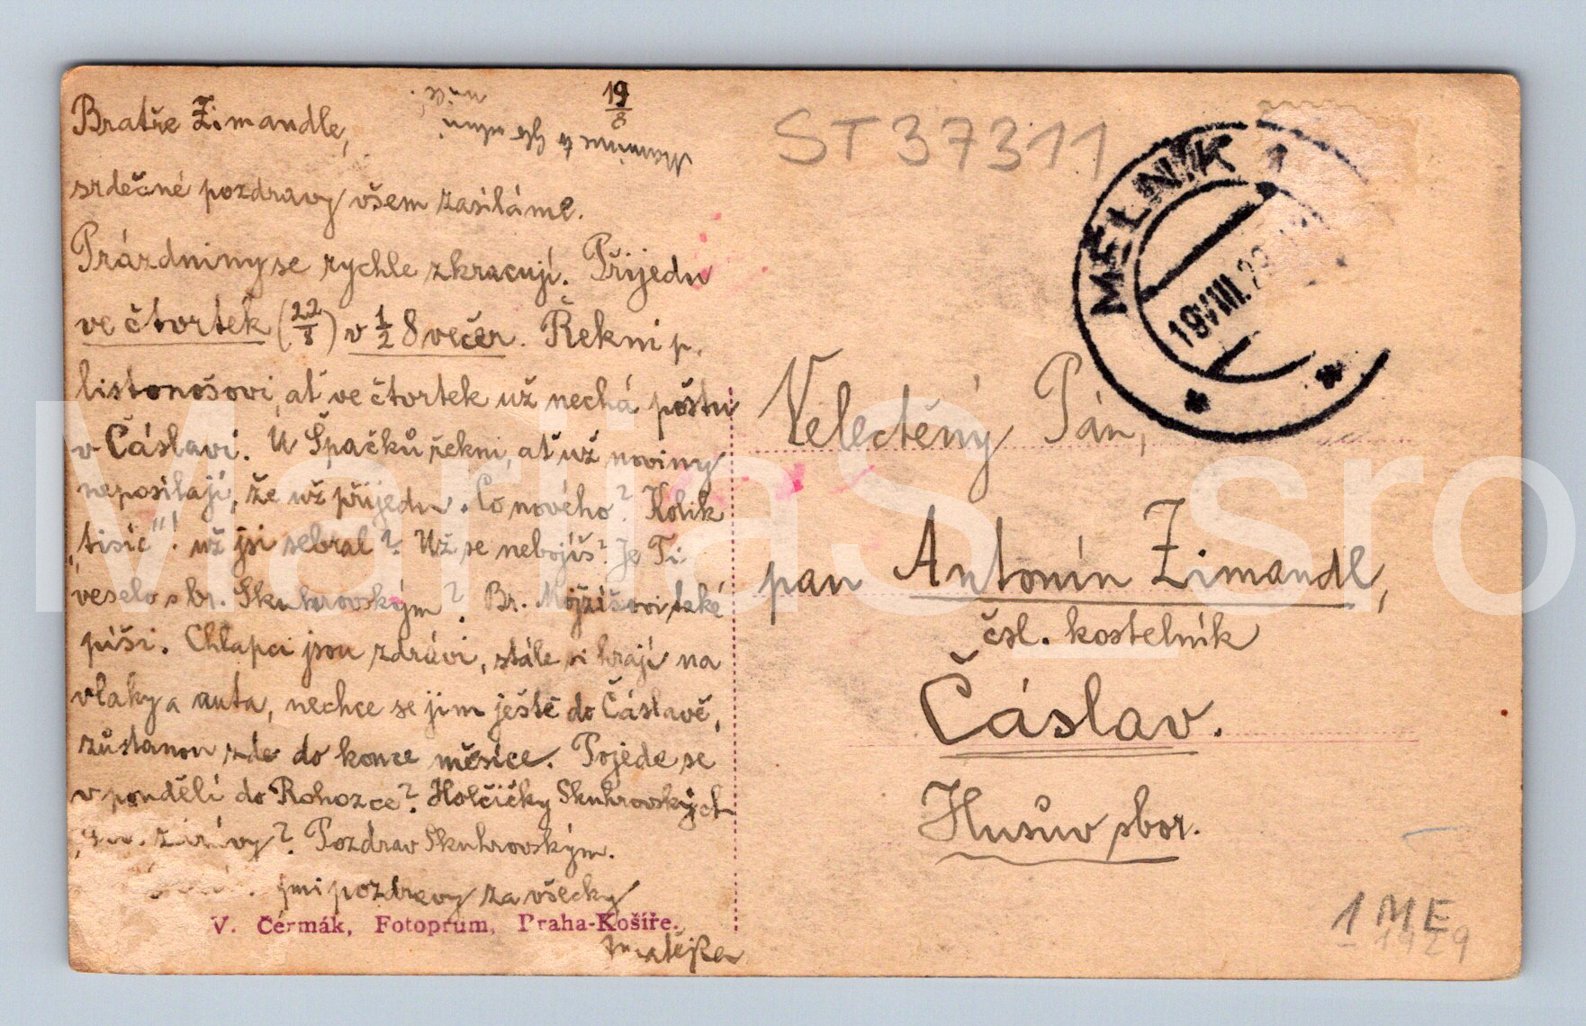 19/8
Bratře Zimandle,
srdečné pozdravy všem zasíláme.
Prázdniny se rychle zkracují. Přijedu
ve čtvrtek (22/8) v 1/2 8 večer. Řekni p.
listonošovi, ať ve čtvrtek už nechá poštu
v Čáslavi. U Špačků řekni, ať už noviny
neposílají, že už přijedu. Co nového? Kolik
„tisíc“! už jsi sebral? Už se nebojíš? Je Ti
veselo s br. Skuhrovským? Br. Mojžíšovi také
píši. Chlapci jsou zdrávi, stále si hrají na
vlaky a auta, nechce se jim ještě do Čáslavě,
zůstanou zde do konce měsíce. Pojede se
v pondělí do Rohozce? Holčičky Skuhrovských
zdrávy? Pozdrav Skuhrovským.
pozdravy za všecky
Matějka
V. Čermák, Fotoprum, Praha-Košíře.
ST37311
MĚLNÍK 1
19.VIII.29
Velectěný Pán,
pan Antonín Zimandl,
čsl. kostelník
Čáslav.
Husův sbor.
1 ME
1929
MarliaS_sro